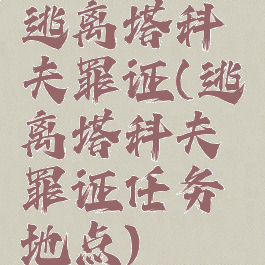 逃离塔科
夫罪证(逃
离塔科夫
罪证任务
地点)